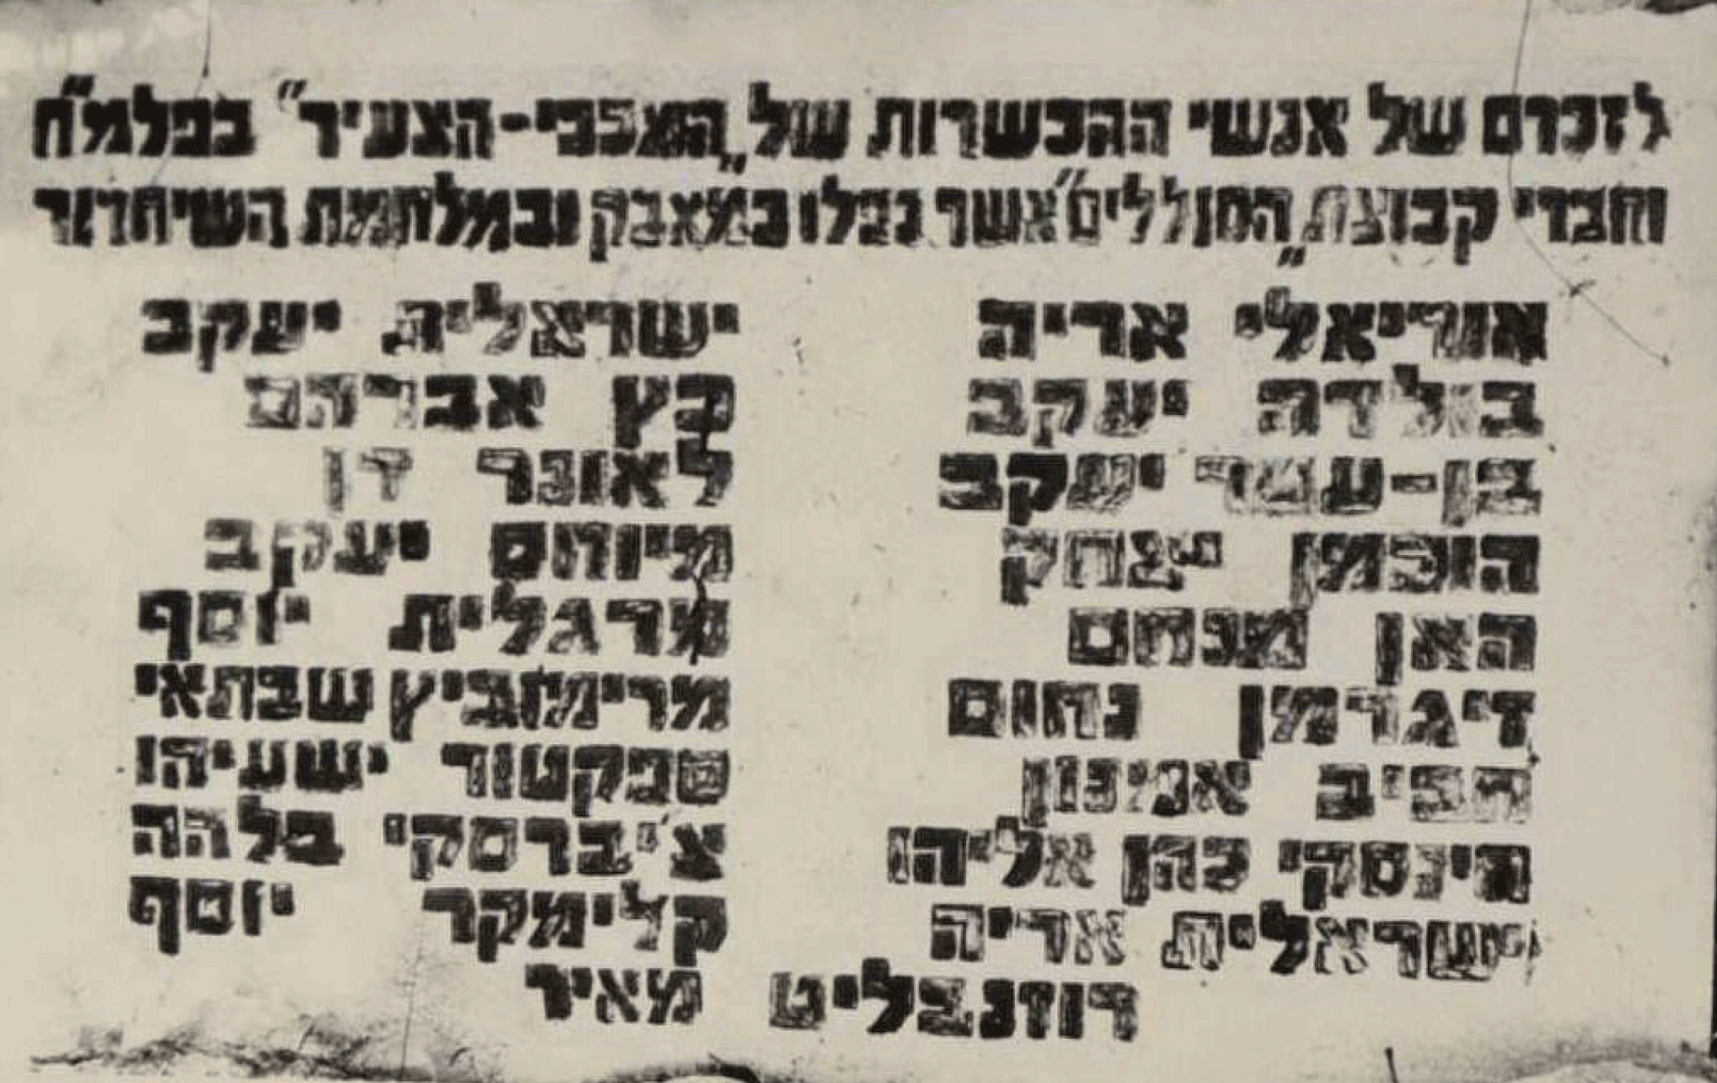 לזכרם של אנשי ההכשרות של „המכבי-הצעיר" בפלמ"ח
וחברי קבוצת „הסוללים" אשר נפלו במאבק ובמלחמת השיחרור
אוריאלי אריה
בולדה יעקב
בן-עמר יעקב
הופמן יצחק
האן מנחם
זיגרמן נחום
חביב אמנון
חינסקי כהן אליהו
ישראלית אריה
ישראלית יעקב
כץ אברהם
לאונר דן
מיוחס יעקב
מרגלית יוסף
מרימוביץ שבתאי
ספקטור ישעיהו
צ'יברסקי בלהה
קלימקר יוסף
רוזנבליט מאיר